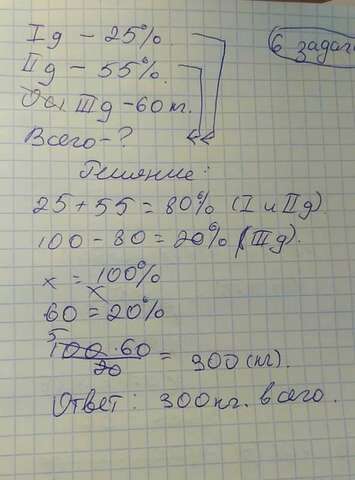 I д - 25%.
6 задача
II д - 55%.
Ост III д - 60 кг.
Всего - ?
Решение:
25 + 55 = 80% (I и II д)
100 - 80 = 20% (III д).
x = 100%
60 = 20%
5
100 · 60 = 300 (кг).
20
Ответ: 300 кг. всего.